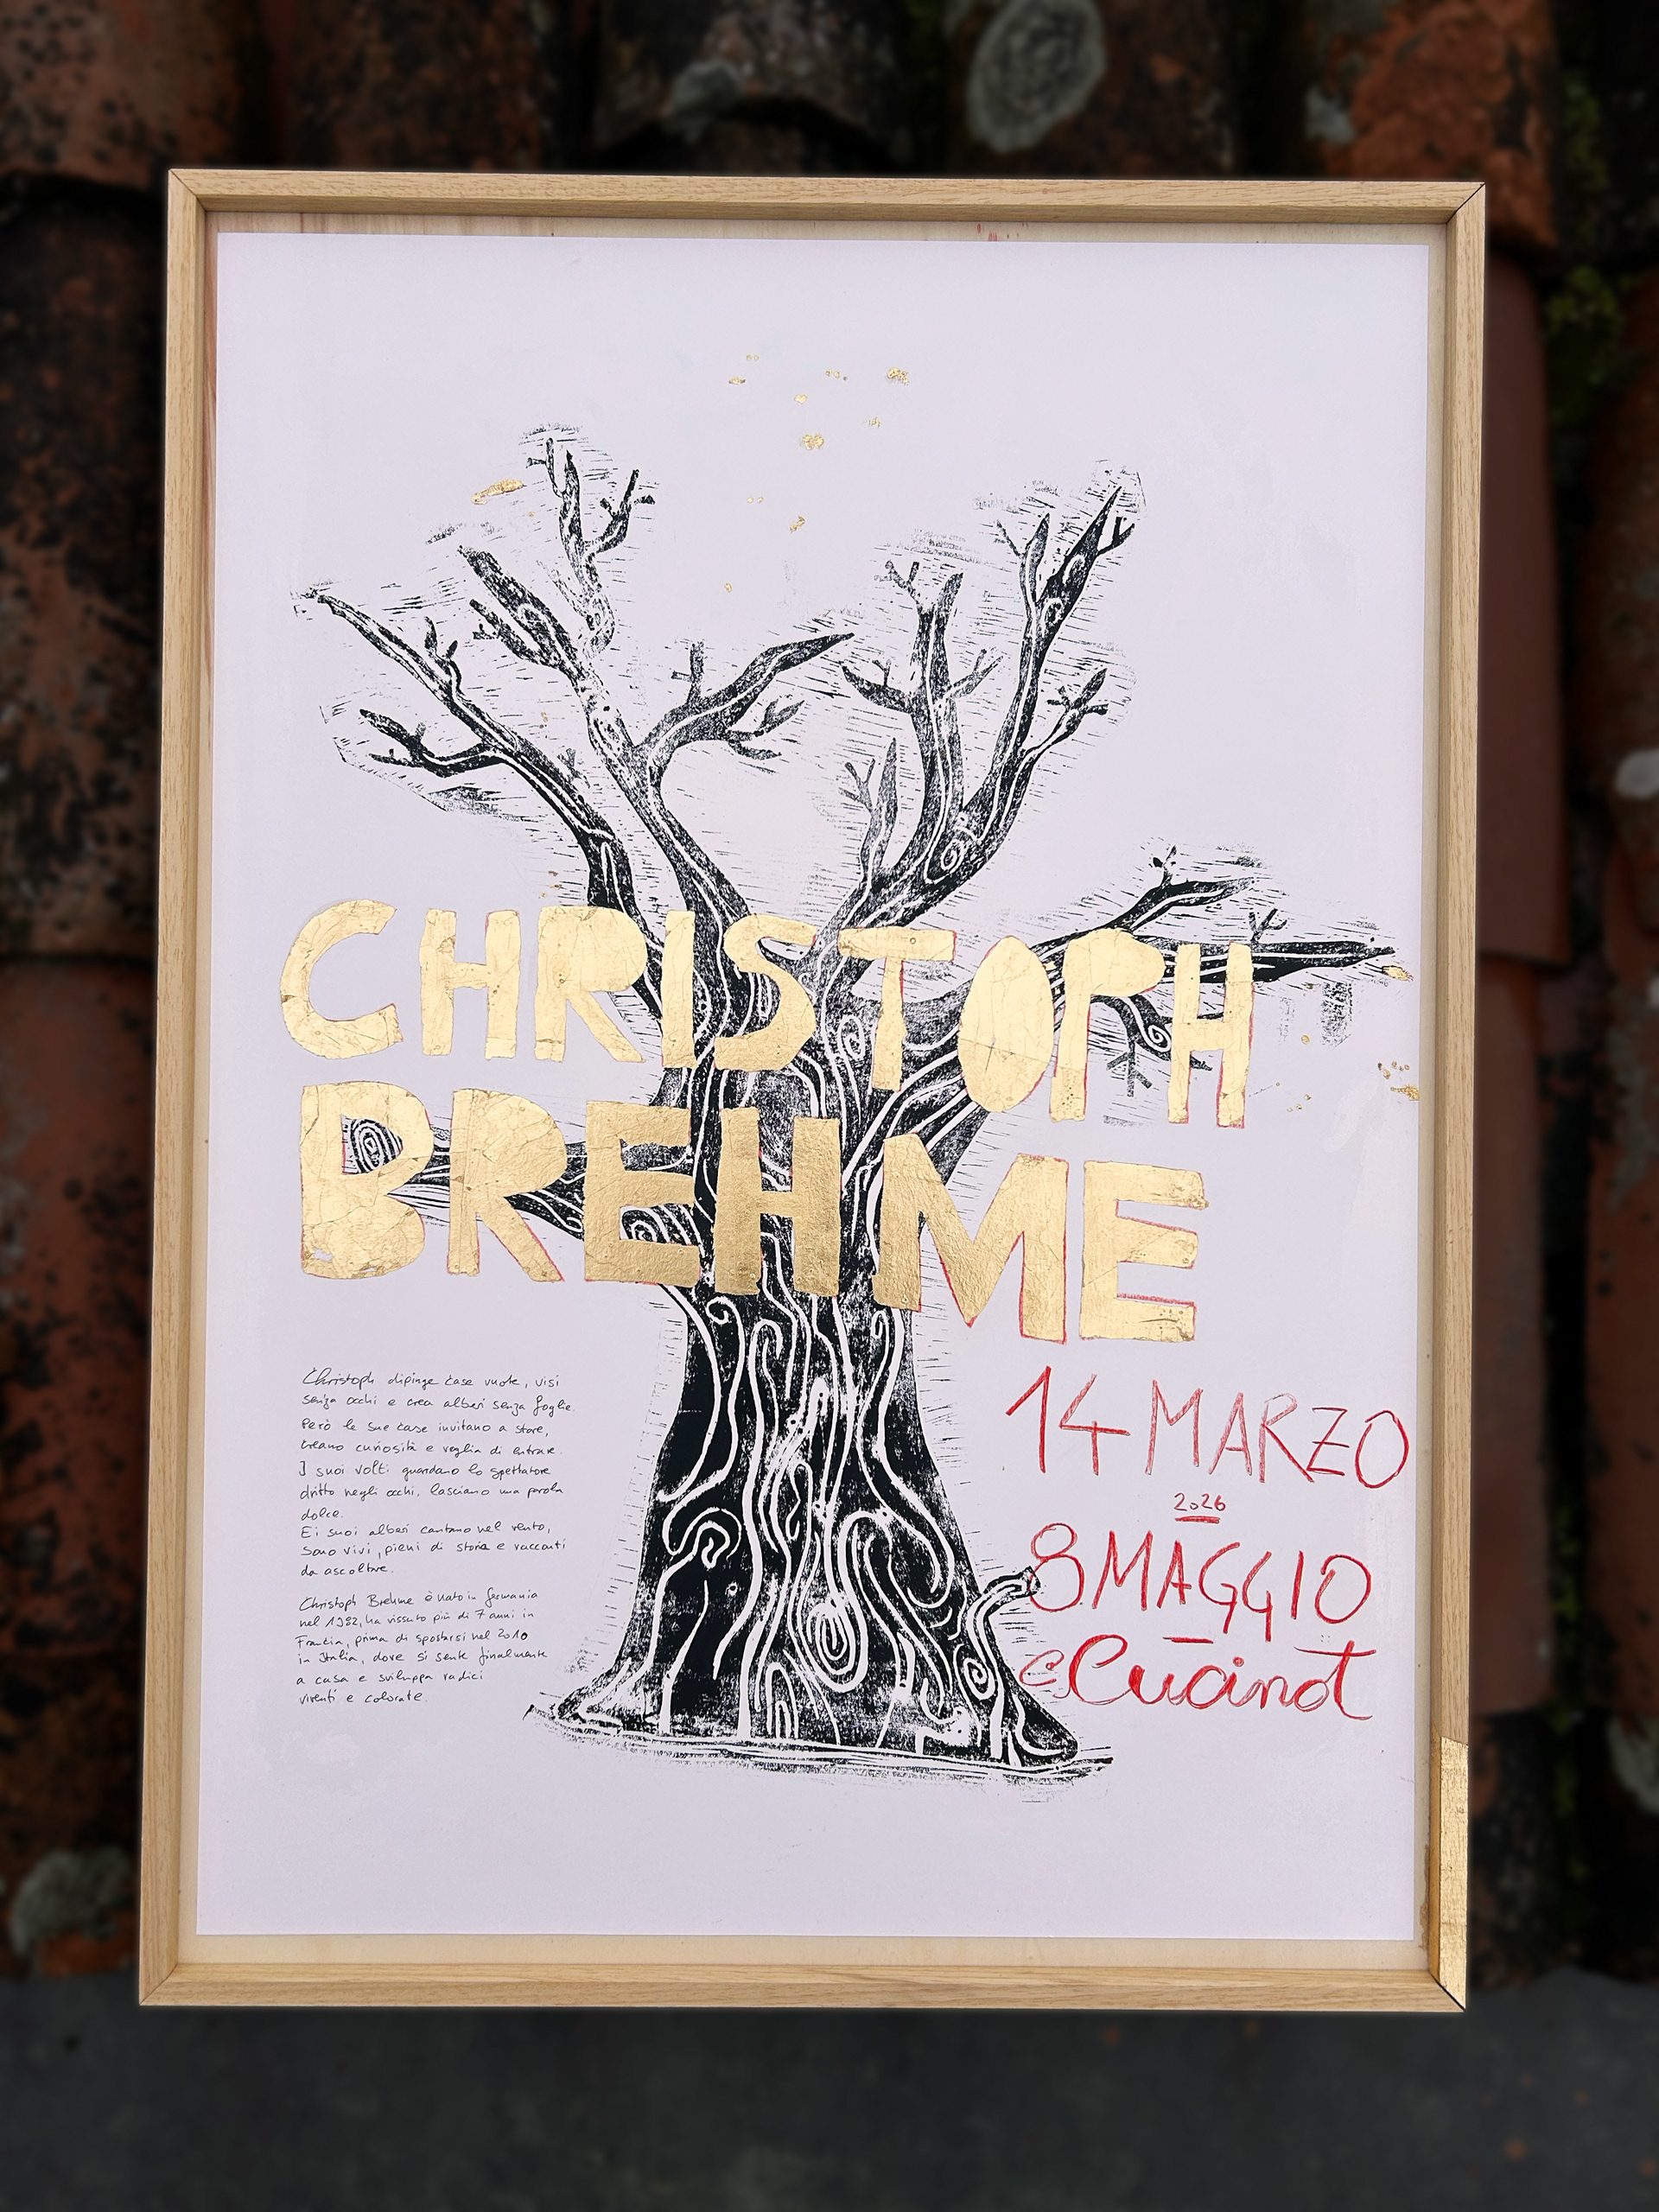 CHRISTOPH
BREHME
Christoph dipinge case vuote, visi
senza occhi e crea alberi senza foglie.
Però le sue case invitano a stare,
creano curiosità e voglia di entrare.
I suoi volti guardano lo spettatore
dritto negli occhi, lasciano una parola
dolce.
E i suoi alberi cantano nel vento,
sono vivi, pieni di storia e racconti
da ascoltare.
Christoph Brehme è nato in Germania
nel 1982, ha vissuto più di 7 anni in
Francia, prima di spostarsi nel 2010
in Italia, dove si sente finalmente
a casa e sviluppa radici
viventi e colorate.
14 MARZO
2026
8 MAGGIO
@Cucinot